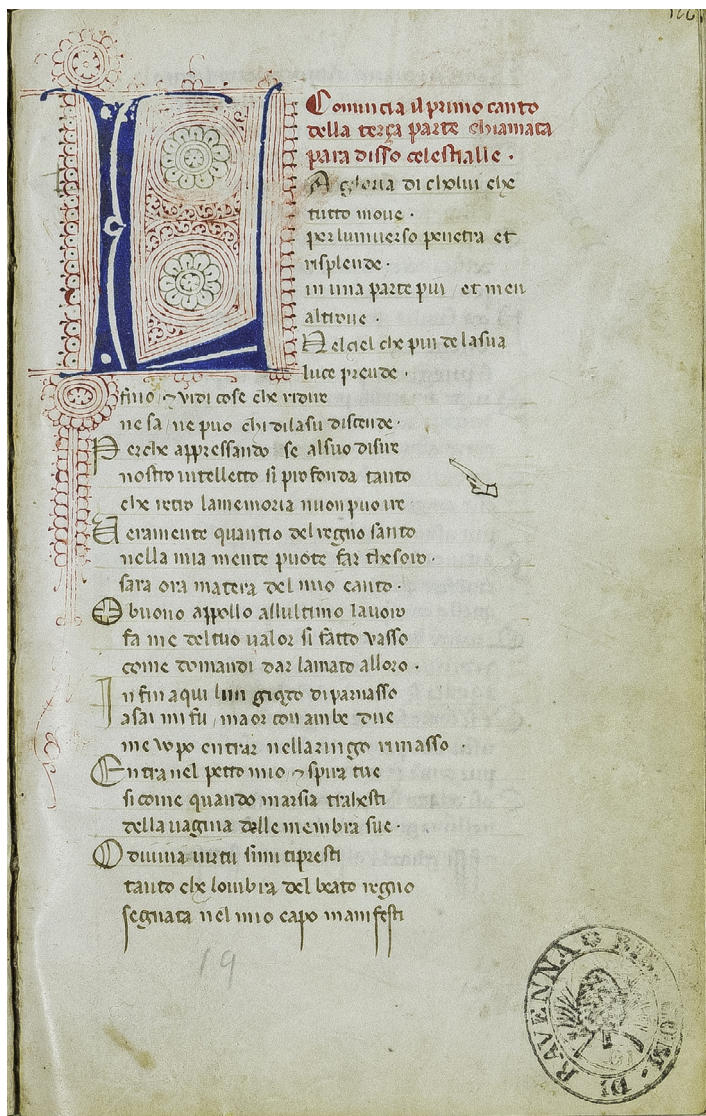 Comincia il primo canto
della terça parte chiamata
paradisso celestialle ·
LA gloria di cholui che
tutto move ·
per luniverso penetra et
risplende ·
in una parte piu / et men
altrove ·
Nel ciel che piu de la sua
luce prende ·
fuio / ⁊ vidi cose che ridire
ne sa / ne puo chi di lasu discende ·
Perche appressando se al suo disire
nostro intelletto si profonda tanto
che retro la memoria nuon puo ire
Ueramente quantio del regno santo
nella mia mente puote far thesoro ·
sara ora matera del mio canto ·
O buono appollo allultimo lavoro
fa me del tuo valor si fatto vasso
come domandi dar lamato alloro ·
In fin a qui lun giogo di parnasso
asai mi fu / ma or con ambe due
me vopo entrar nellaringo rimasso
Entra nel petto mio ⁊ spira tue
si come quando marsia trahesti
della vagina delle membra sue ·
O divina virtu si mi ti presti
tanto che lombra del beato regno
segnata nel mio capo manifesti
19
DI RAVENNA